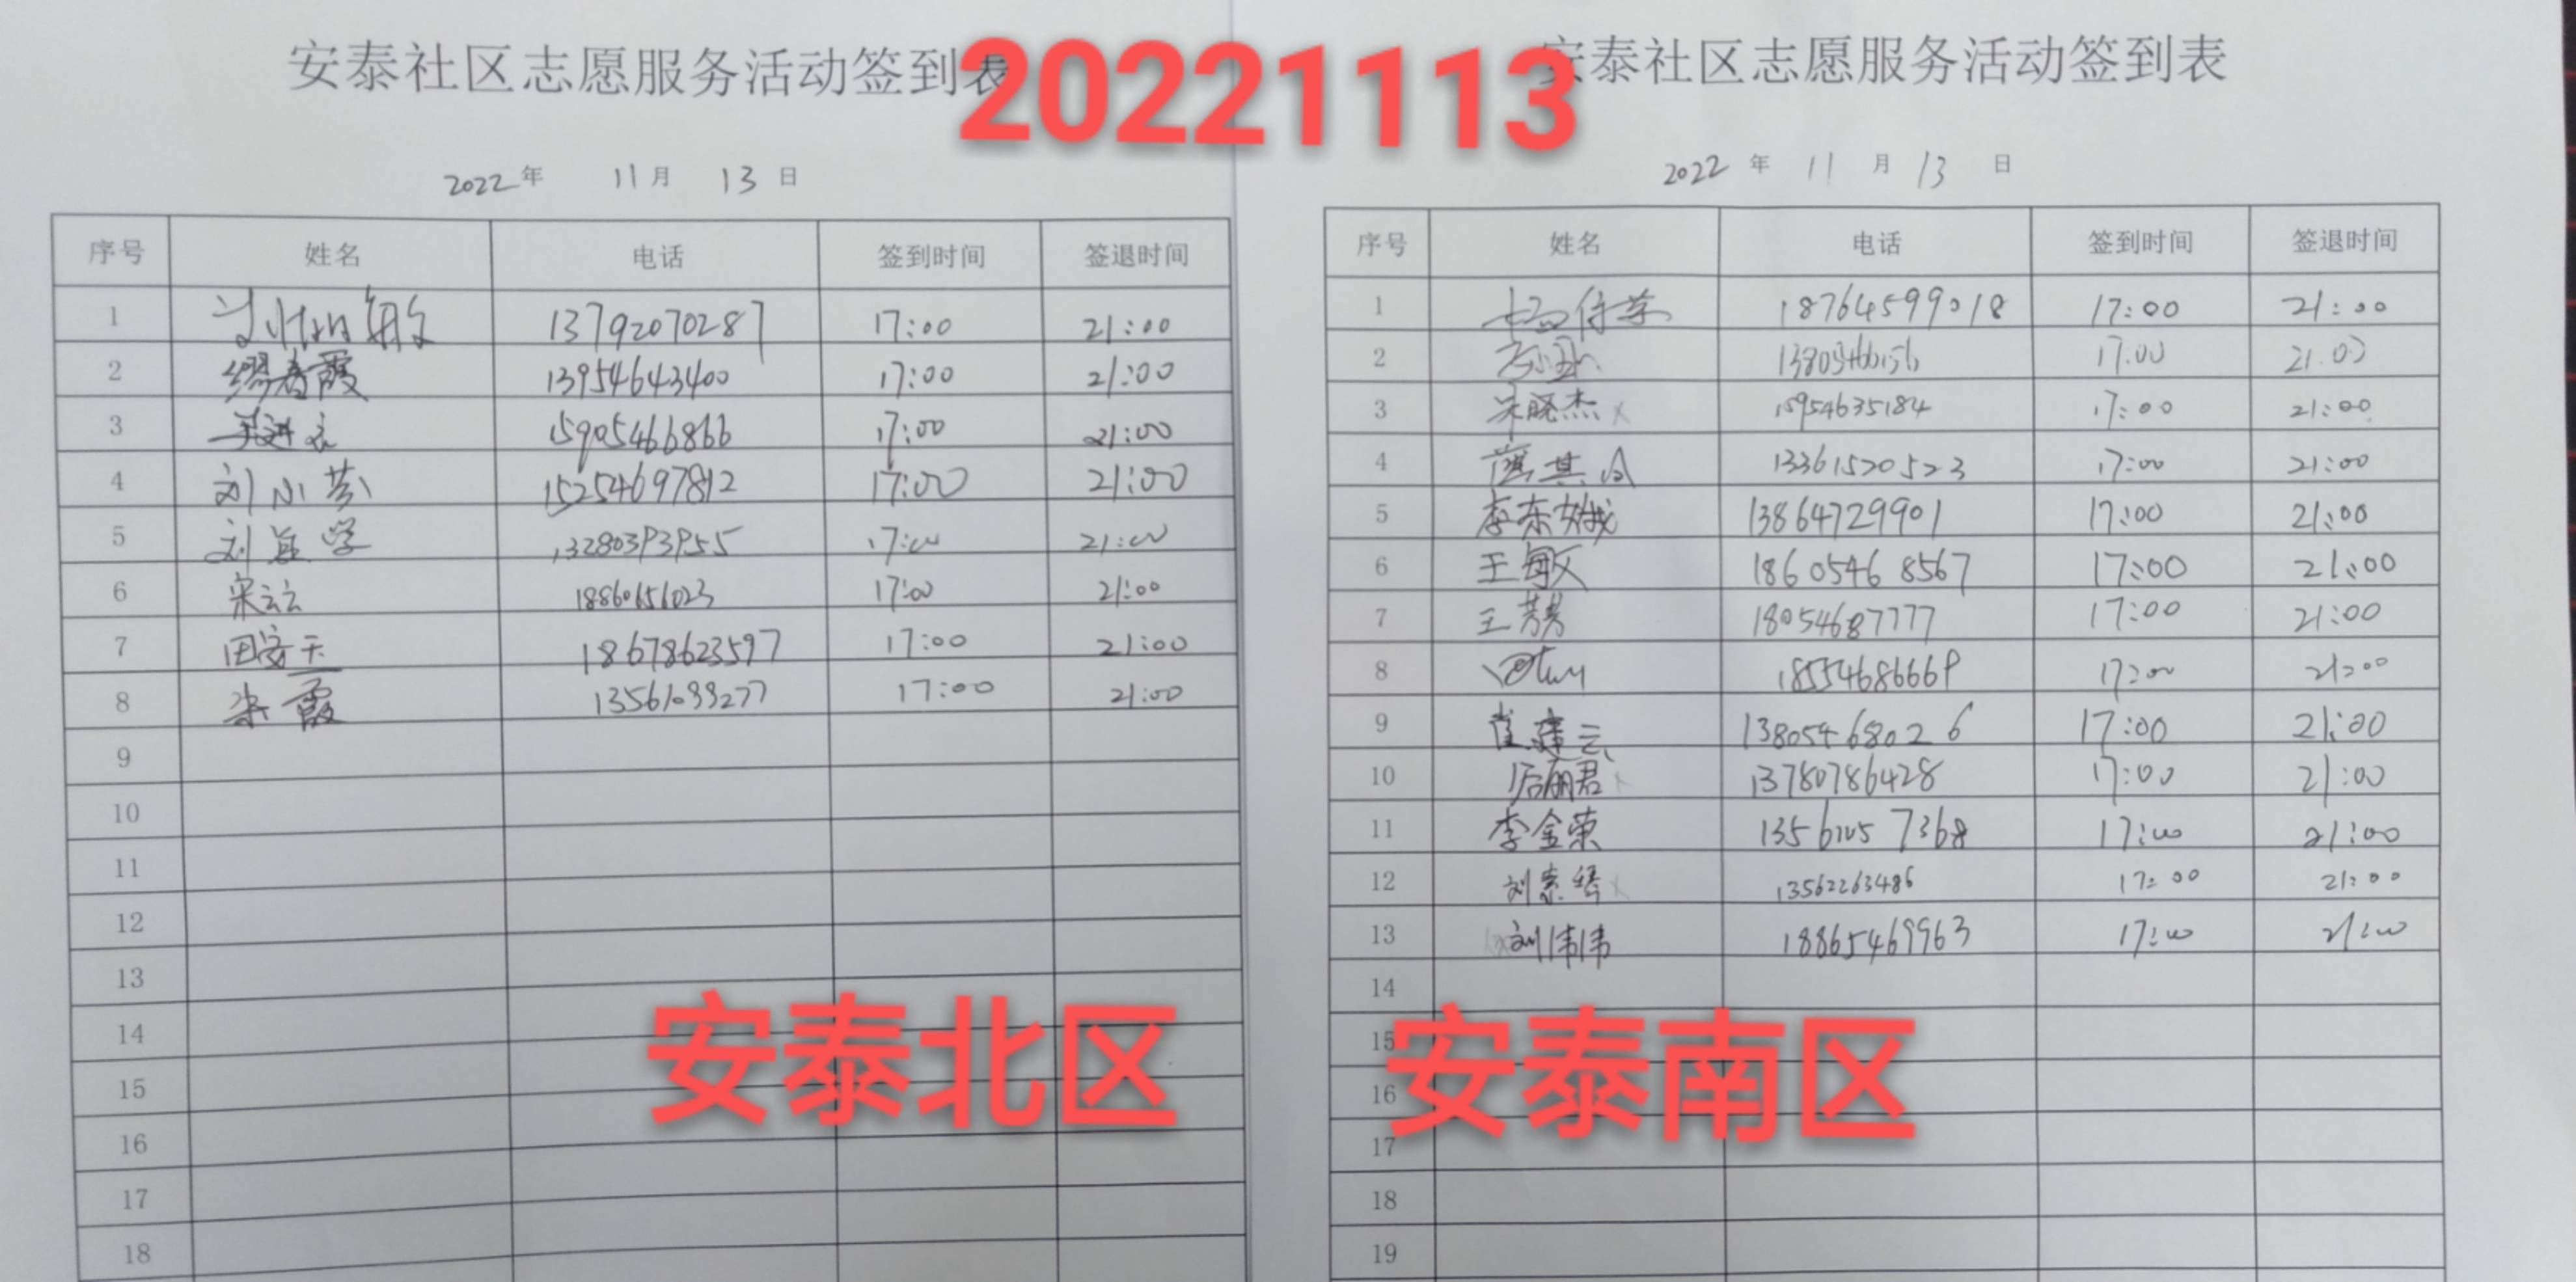 20221113
安泰社区志愿服务活动签到表
2022年 11月 13日
序号 姓名 电话 签到时间 签退时间
1 13792070287 17:00 21:00
2 缪春霞 13954643400 17:00 21:00
3 15905466866 17:00 21:00
4 刘小芬 15254697812 17:00 21:00
5 17:00 21:00
6 宋云云 18860656023 17:00 21:00
7 田安玉 18678623597 17:00 21:00
8 霞 17:00 21:00
9
10
11
12
13
14
15
16
17
18
安泰北区
安泰社区志愿服务活动签到表
2022 年 11 月 13 日
序号 姓名 电话 签到时间 签退时间
1 18764599018 17:00 21:00
2 17:00 21:00
3 宋晓杰 15954635184 17:00 21:00
4 13361520523 17:00 21:00
5 李东娥 13864729901 17:00 21:00
6 王敏 18605468567 17:00 21:00
7 王芳芳 18054687777 17:00 21:00
8 17:00 21:00
9 崔建云 13805468026 17:00 21:00
10 厉丽君 13780786428 17:00 21:00
11 李金荣 17:00 21:00
12 刘 13562263486 17:00 21:00
13 刘伟伟 18865469963 17:00 21:00
14
15
16
17
18
19
安泰南区